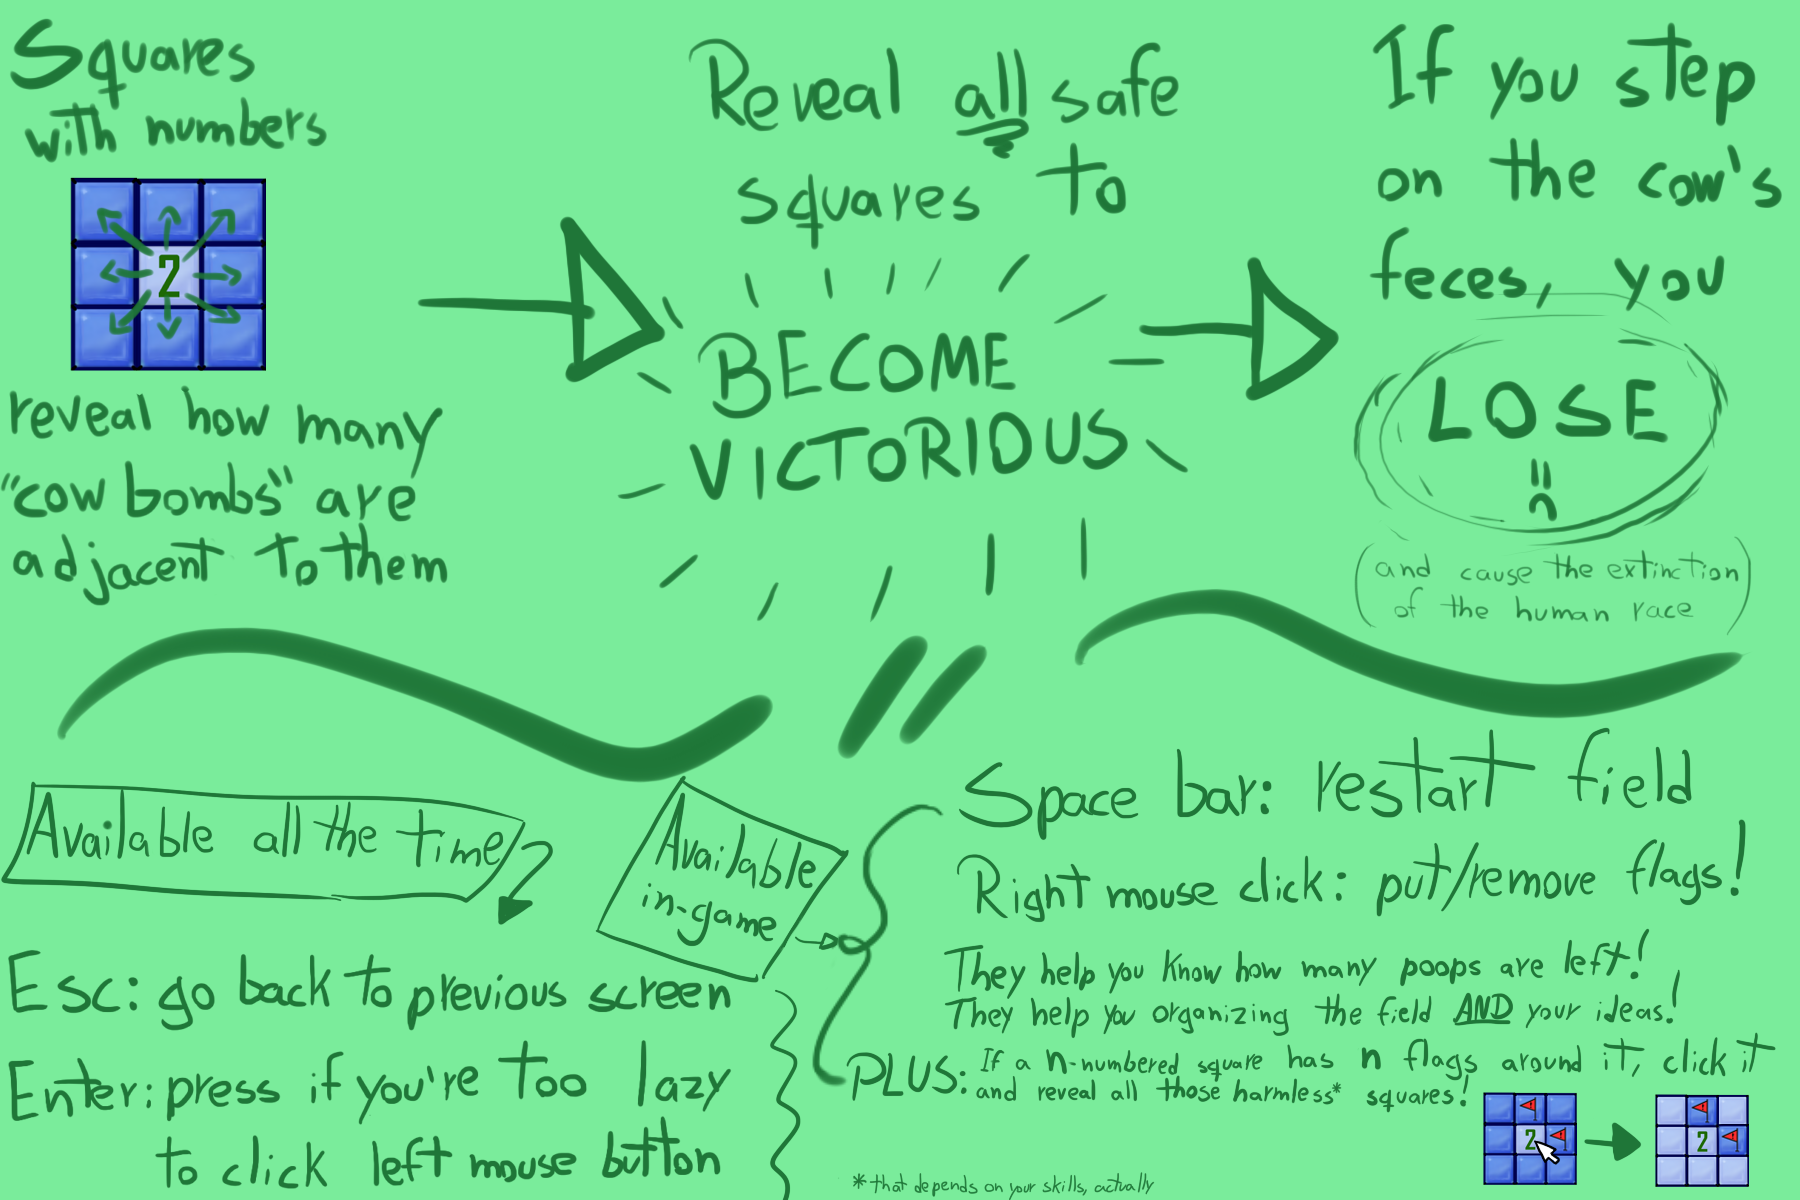 Squares
with numbers
2
reveal how many
"cow bombs" are
adjacent to them
Reveal all safe
squares to
BECOME
VICTORIOUS
If you step
on the cow's
feces, you
LOSE
(and cause the extinction
of the human race)
Available all the time
Esc: go back to previous screen
Enter: press if you're too lazy
to click left mouse button
Available
in-game
Space bar: restart field
Right mouse click: put/remove flags!
They help you know how many poops are left!
They help you organizing the field AND your ideas!
PLUS: If a n-numbered square has n flags around it, click it
and reveal all those harmless* squares!
2
2
*that depends on your skills, actually